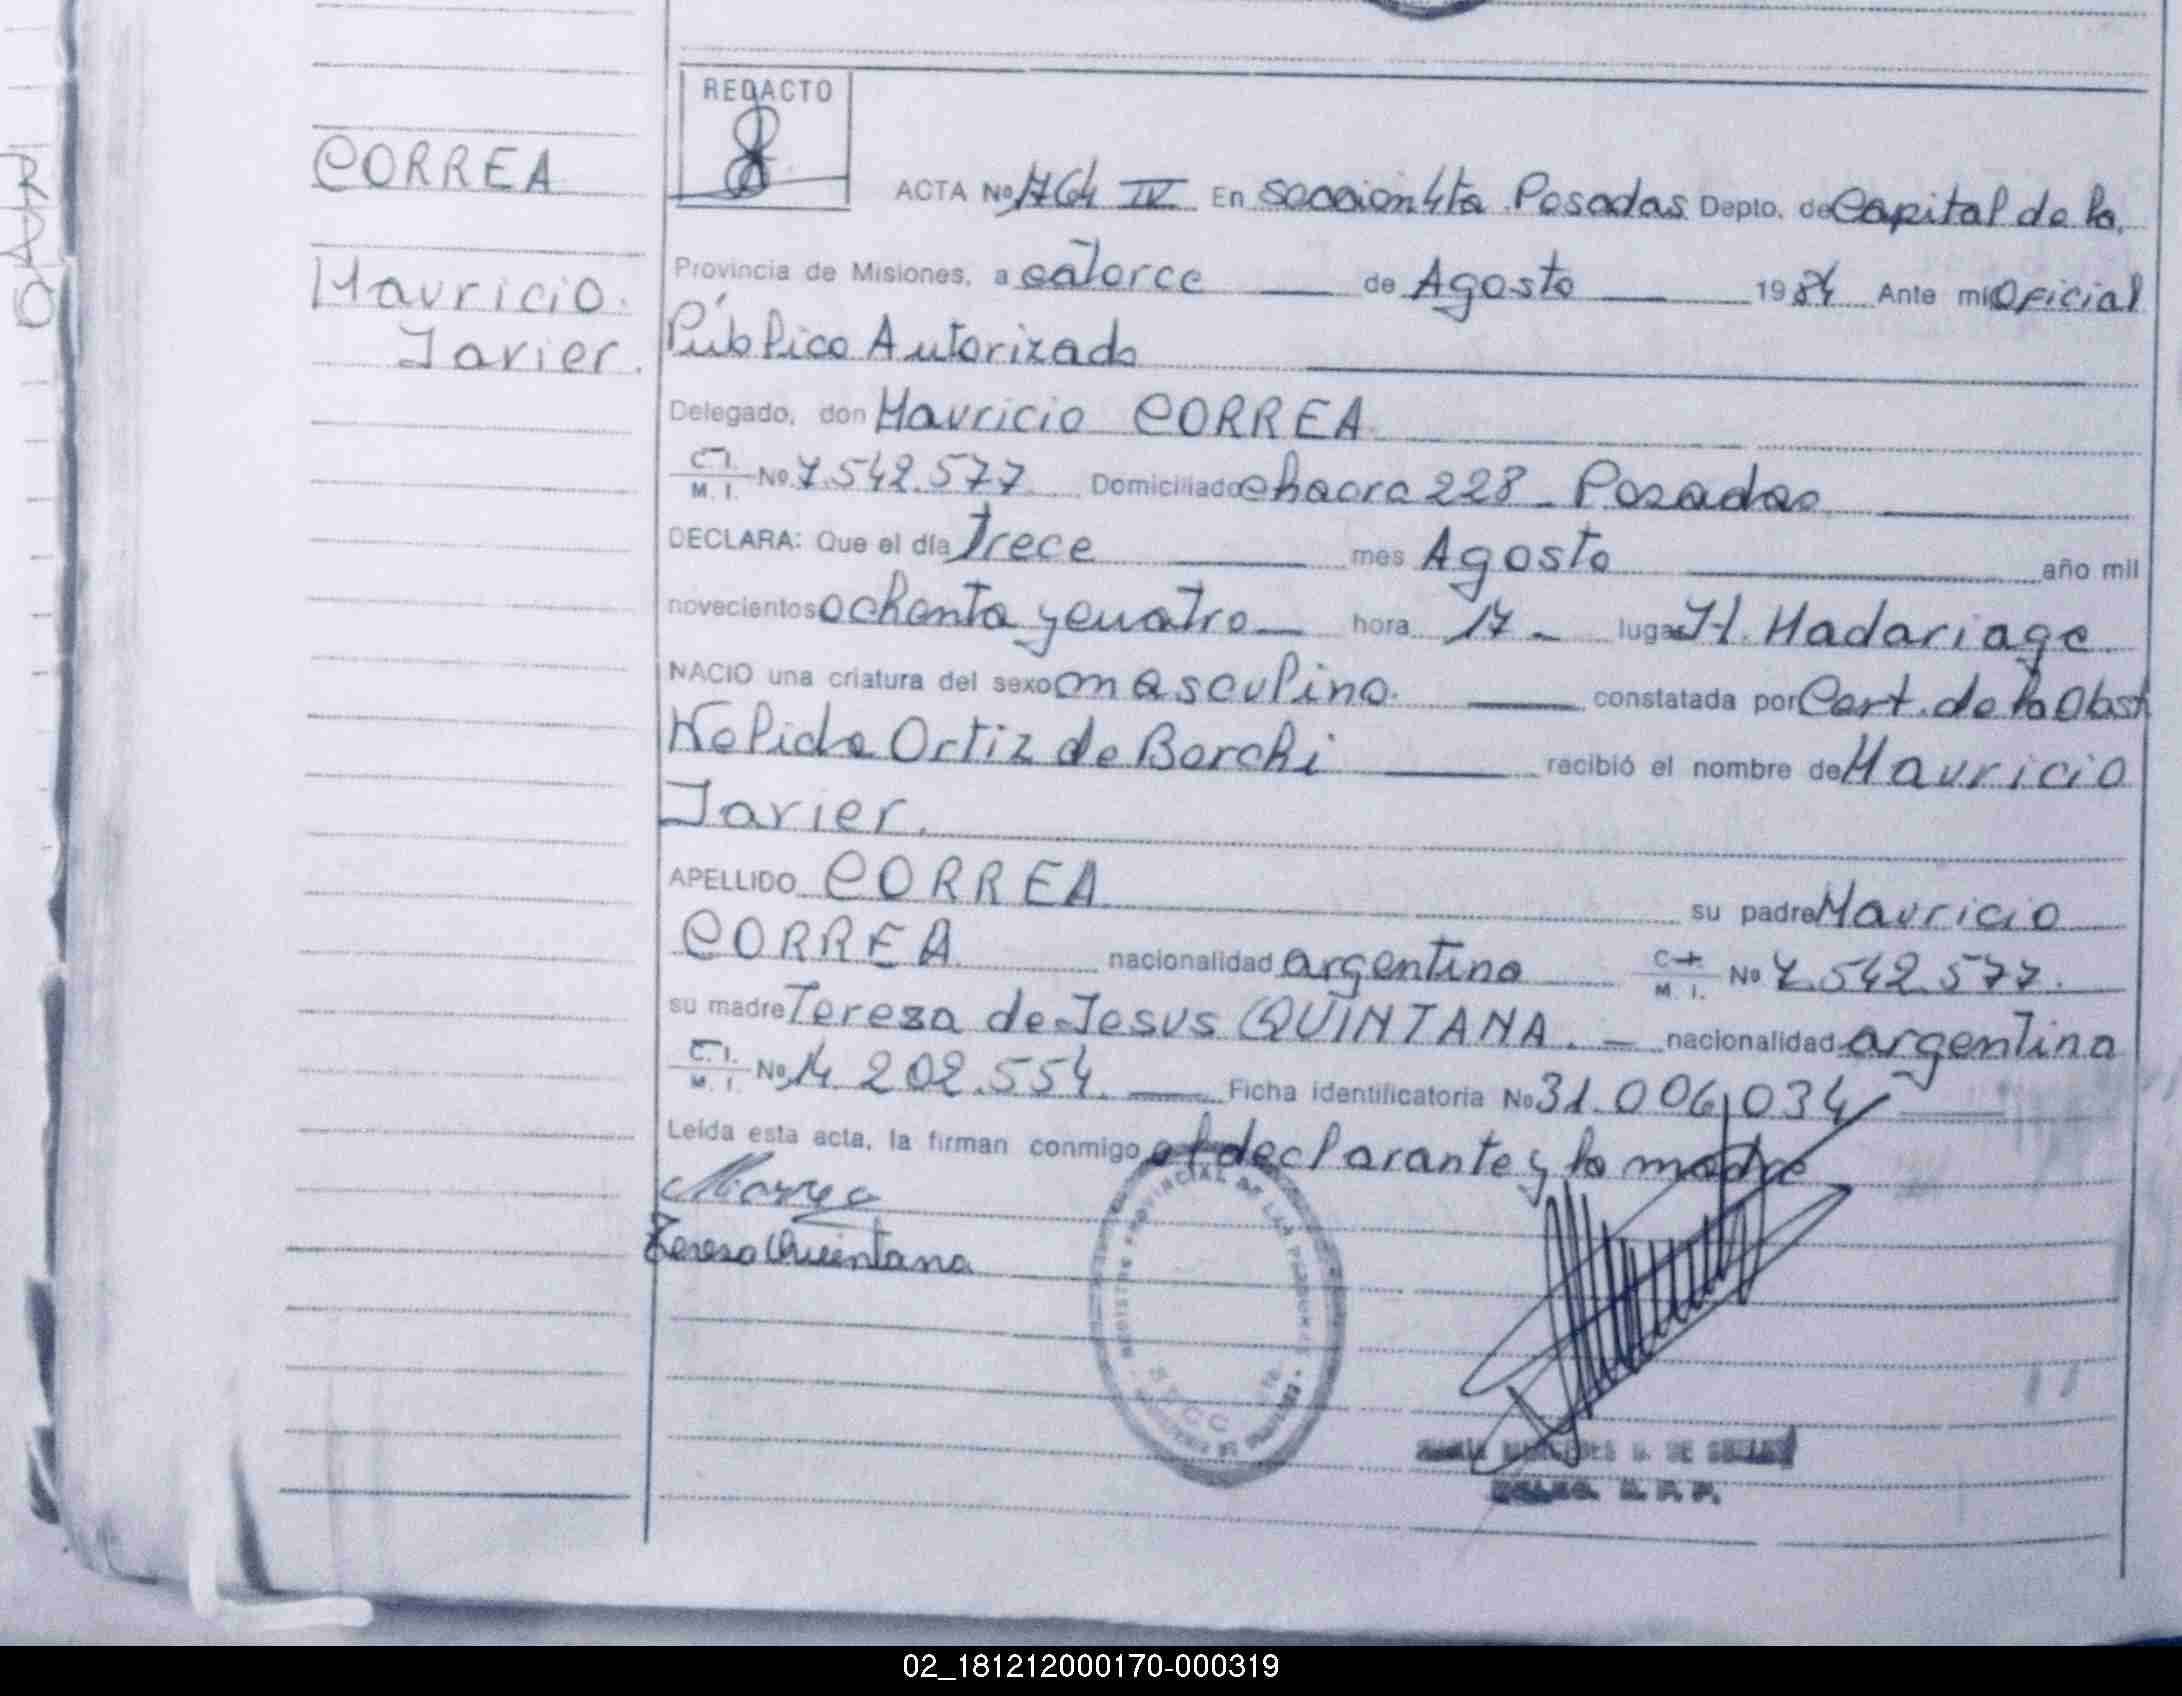 REDACTO
CORREA
ACTA No 1764 IV En Seccion 4ta Posadas Depto. de Capital de la
Mauricio
Provincia de Misiones, a catorce de Agosto 1984 Ante mi Oficial
Javier.
Público Autorizado
Delegado, don Mauricio CORREA
C.I. M. I. No. 7.542.577 Domiciliado chacra 228 - Posadas
DECLARA: Que el día Trece mes Agosto año mil
novecientos ochenta y cuatro hora 17 - lugar H. Madariaga
NACIO una criatura del sexo masculino. constatada por Cert. de la Obst
Nelida Ortiz de Borchi recibió el nombre de Mauricio
Javier.
APELLIDO CORREA su padre Mauricio
CORREA nacionalidad argentina C.I. M. I. No 7.542.577.
su madre Teresa de Jesus QUINTANA. nacionalidad argentina
C. I. M. I. No. 14.202.554. Ficha identificatoria No 31.006.034
Leída esta acta, la firman conmigo el declarante y la madre
Teresa Quintana
REGISTRO PROVINCIAL DE LAS PERSONAS
02_181212000170-000319